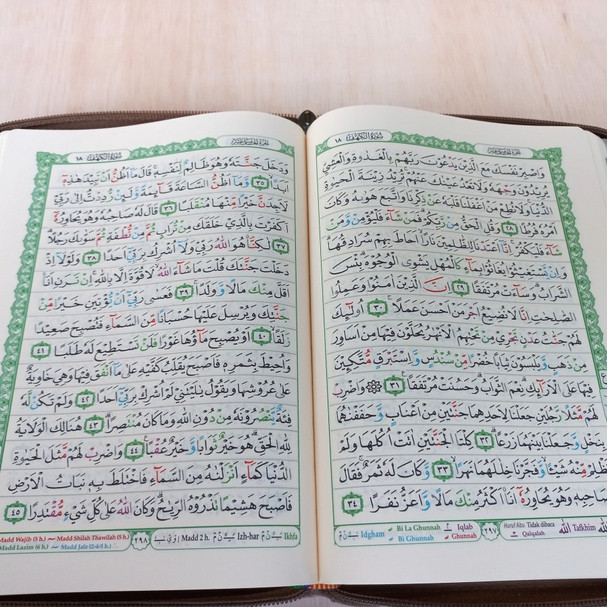 سورة الكهف ١٨
وَاصْبِرْ نَفْسَكَ مَعَ الَّذِيْنَ يَدْعُوْنَ رَبَّهُمْ بِالْغَدٰوةِ وَالْعَشِيِّ
يُرِيْدُوْنَ وَجْهَهٗ وَلَا تَعْدُ عَيْنٰكَ عَنْهُمْ تُرِيْدُ زِيْنَةَ الْحَيٰوةِ
الدُّنْيَا وَلَا تُطِعْ مَنْ اَغْفَلْنَا قَلْبَهٗ عَنْ ذِكْرِنَا وَاتَّبَعَ هَوٰىهُ وَكَانَ
اَمْرُهٗ فُرُطًا ٢٨ وَقُلِ الْحَقُّ مِنْ رَّبِّكُمْ فَمَنْ شَاۤءَ فَلْيُؤْمِنْ وَّمَنْ
شَاۤءَ فَلْيَكْفُرْ اِنَّآ اَعْتَدْنَا لِلظّٰلِمِيْنَ نَارًا اَحَاطَ بِهِمْ سُرَادِقُهَا
وَاِنْ يَّسْتَغِيْثُوْا يُغَاثُوْا بِمَاۤءٍ كَالْمُهْلِ يَشْوِى الْوُجُوْهَ بِئْسَ
الشَّرَابُ وَسَاۤءَتْ مُرْتَفَقًا ٢٩ اِنَّ الَّذِيْنَ اٰمَنُوْا وَعَمِلُوا
الصّٰلِحٰتِ اِنَّا لَا نُضِيْعُ اَجْرَ مَنْ اَحْسَنَ عَمَلًا ٣٠ اُولٰۤىِٕكَ
لَهُمْ جَنّٰتُ عَدْنٍ تَجْرِيْ مِنْ تَحْتِهِمُ الْاَنْهٰرُ يُحَلَّوْنَ فِيْهَا مِنْ اَسَاوِرَ
مِنْ ذَهَبٍ وَّيَلْبَسُوْنَ ثِيَابًا خُضْرًا مِّنْ سُنْدُسٍ وَّاِسْتَبْرَقٍ مُّتَّكِـِٕيْنَ
فِيْهَا عَلَى الْاَرَاۤىِٕكِ نِعْمَ الثَّوَابُ وَحَسُنَتْ مُرْتَفَقًا ٣١ ۞ وَاضْرِبْ
لَهُمْ مَّثَلًا رَّجُلَيْنِ جَعَلْنَا لِاَحَدِهِمَا جَنَّتَيْنِ مِنْ اَعْنَابٍ وَّحَفَفْنٰهُمَا
بِنَخْلٍ وَّجَعَلْنَا بَيْنَهُمَا زَرْعًا ٣٢ كِلْتَا الْجَنَّتَيْنِ اٰتَتْ اُكُلَهَا وَلَمْ
تَظْلِمْ مِّنْهُ شَيْـًٔا وَّفَجَّرْنَا خِلٰلَهُمَا نَهَرًا ٣٣ وَّكَانَ لَهٗ ثَمَرٌ فَقَالَ
لِصَاحِبِهٖ وَهُوَ يُحَاوِرُهٗٓ اَنَا۠ اَكْثَرُ مِنْكَ مَالًا وَّاَعَزُّ نَفَرًا ٣٤
Idgham Bi La Ghunnah Bi Ghunnah Iqlab Ghunnah ٢٩٧ Huruf Abu Tidak dibaca Qalqalah الله Tafkhim الله
سورة الكهف ١٨
وَدَخَلَ جَنَّتَهٗ وَهُوَ ظَالِمٌ لِّنَفْسِهٖ قَالَ مَآ اَظُنُّ اَنْ تَبِيْدَ هٰذِهٖٓ
اَبَدًا ٣٥ وَّمَآ اَظُنُّ السَّاعَةَ قَاۤىِٕمَةً وَّلَىِٕنْ رُّدِدْتُّ اِلٰى رَبِّيْ
لَاَجِدَنَّ خَيْرًا مِّنْهَا مُنْقَلَبًا ٣٦ قَالَ لَهٗ صَاحِبُهٗ وَهُوَ يُحَاوِرُهٗٓ
اَكَفَرْتَ بِالَّذِيْ خَلَقَكَ مِنْ تُرَابٍ ثُمَّ مِنْ نُّطْفَةٍ ثُمَّ سَوّٰىكَ رَجُلًا
٣٧ لٰكِنَّا۠ هُوَ اللّٰهُ رَبِّيْ وَلَآ اُشْرِكُ بِرَبِّيْٓ اَحَدًا ٣٨ وَلَوْلَآ اِذْ
دَخَلْتَ جَنَّتَكَ قُلْتَ مَا شَاۤءَ اللّٰهُ لَا قُوَّةَ اِلَّا بِاللّٰهِ اِنْ تَرَنِ اَنَا۠
اَقَلَّ مِنْكَ مَالًا وَّوَلَدًا ٣٩ فَعَسٰى رَبِّيْٓ اَنْ يُّؤْتِيَنِ خَيْرًا مِّنْ
جَنَّتِكَ وَيُرْسِلَ عَلَيْهَا حُسْبَانًا مِّنَ السَّمَاۤءِ فَتُصْبِحَ صَعِيْدًا
زَلَقًا ٤٠ اَوْ يُصْبِحَ مَاۤؤُهَا غَوْرًا فَلَنْ تَسْتَطِيْعَ لَهٗ طَلَبًا ٤١
وَاُحِيْطَ بِثَمَرِهٖ فَاَصْبَحَ يُقَلِّبُ كَفَّيْهِ عَلٰى مَآ اَنْفَقَ فِيْهَا وَهِيَ خَاوِيَةٌ
عَلٰى عُرُوْشِهَا وَيَقُوْلُ يٰلَيْتَنِيْ لَمْ اُشْرِكْ بِرَبِّيْٓ اَحَدًا ٤٢ وَلَمْ تَكُنْ لَّهٗ
فِئَةٌ يَّنْصُرُوْنَهٗ مِنْ دُوْنِ اللّٰهِ وَمَا كَانَ مُنْتَصِرًا ٤٣ هُنَالِكَ الْوَلَايَةُ
لِلّٰهِ الْحَقِّ هُوَ خَيْرٌ ثَوَابًا وَّخَيْرٌ عُقْبًا ٤٤ وَاضْرِبْ لَهُمْ مَّثَلَ الْحَيٰوةِ
الدُّنْيَا كَمَاۤءٍ اَنْزَلْنٰهُ مِنَ السَّمَاۤءِ فَاخْتَلَطَ بِهٖ نَبَاتُ الْاَرْضِ
فَاَصْبَحَ هَشِيْمًا تَذْرُوْهُ الرِّيٰحُ وَكَانَ اللّٰهُ عَلٰى كُلِّ شَيْءٍ مُّقْتَدِرًا ٤٥
Madd Wajib (5 h.) Madd Shilah Thawilah (5 h.) ٢٩٨ Madd 2 h. Izh-har Ikhfa
Madd Lazim (6 h.) Madd Jaiz (2-4-5 h.)